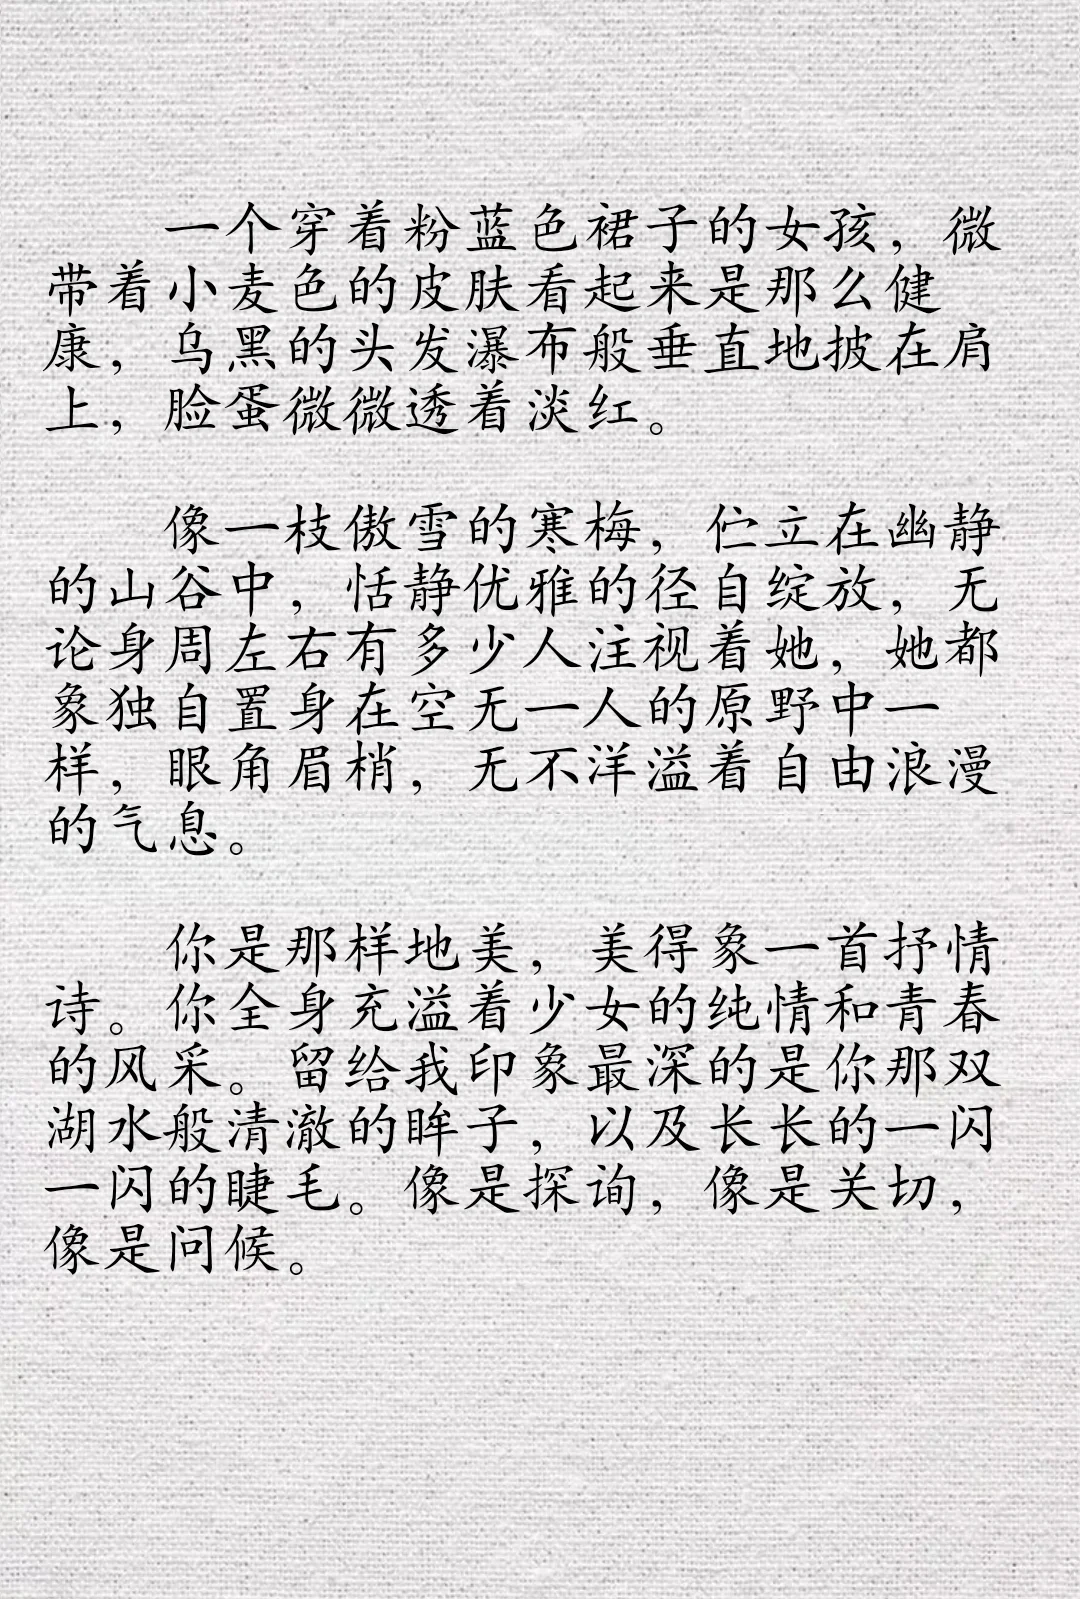 一个穿着粉蓝色裙子的女孩，微
带着小麦色的皮肤看起来是那么健
康，乌黑的头发瀑布般垂直地披在肩
上，脸蛋微微透着淡红。
像一枝傲雪的寒梅，伫立在幽静
的山谷中，恬静优雅的径自绽放，无
论身周左右有多少人注视着她，她都
象独自置身在空无一人的原野中一
样，眼角眉梢，无不洋溢着自由浪漫
的气息。
你是那样地美，美得象一首抒情
诗。你全身充溢着少女的纯情和青春
的风采。留给我印象最深的是你那双
湖水般清澈的眸子，以及长长的一闪
一闪的睫毛。像是探询，像是关切，
像是问候。